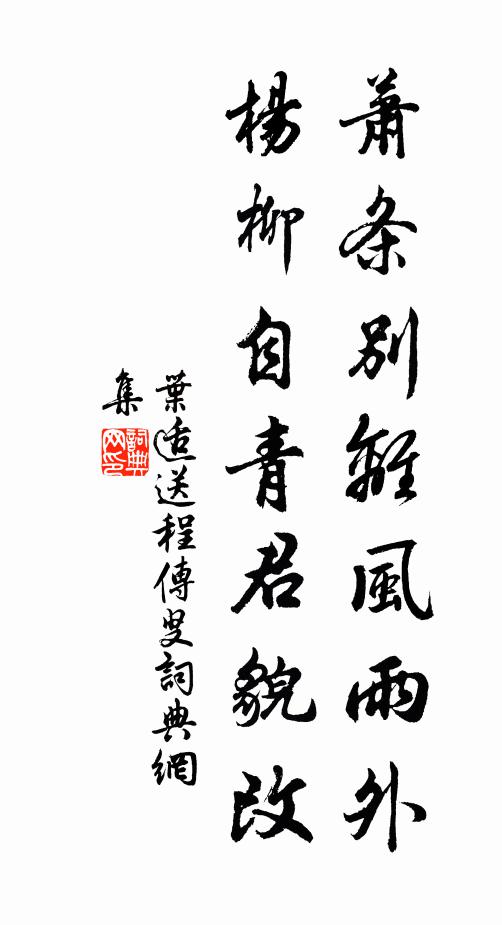 蕭条別離風雨外
楊柳自青君貌改
葉适送程傳叟詞典網
集
詞典
网印